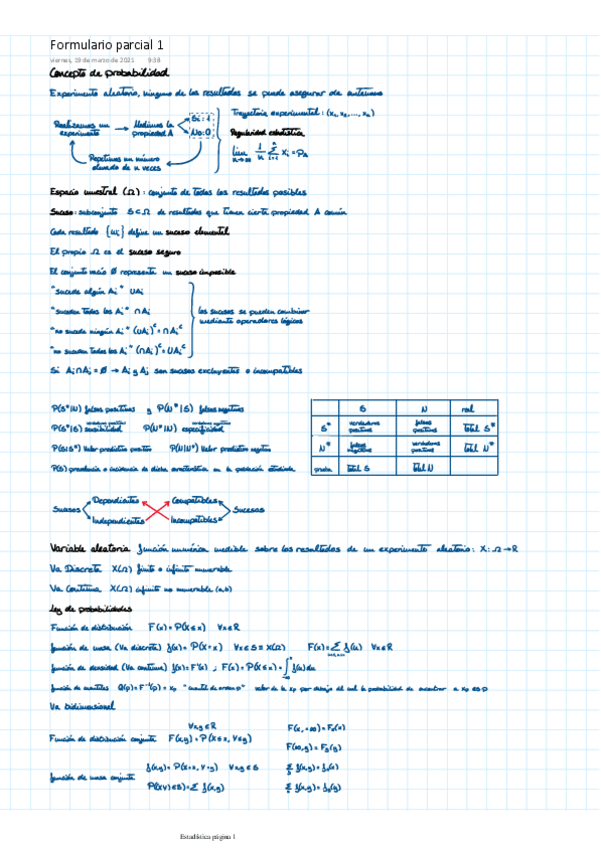 Formulario parcial 1
viernes, 19 de marzo de 2021 9:38
Concepto de probabilidad
Experimento aleatorio, ninguno de los resultados se puede asegurar de antemano
Realizamos un experimento → Medimos la propiedad A
Sí: 1
No: 0
Repetimos un número elevado de n veces
Trayectoria experimental: (x₁, x₂, ..., xₙ)
Regularidad estadística
lim n→∞ 1/n Σ i=1 n Xi = P_A
Espacio muestral (Ω): conjunto de todos los resultados posibles
Suceso: subconjunto S⊂Ω de resultados que tienen cierta propiedad A común
Cada resultado {ωi} define un suceso elemental
El propio Ω es el suceso seguro
El conjunto vacío Ø representa un suceso imposible
"sucede algún Ai" ∪Ai
"suceden todos los Ai" ∩Ai
"no sucede ningún Ai" (∪Ai)ᶜ = ∩Aiᶜ
"no suceden todos los Ai" (∩Ai)ᶜ = ∪Aiᶜ
los sucesos se pueden combinar mediante operadores lógicos
Si Ai∩Aj = Ø → Ai y Aj son sucesos excluyentes o incompatibles
P(S*|N) falsos positivos y P(N*|S) falsos negativos
P(S*|S) sensibilidad P(N*|N) especificidad
P(S|S*) Valor predictivo positivo P(N|N*) Valor predictivo negativo
P(S) prevalencia o incidencia de dicha característica en la población estudiada
S N real
S* verdaderos positivos falsos positivos total S*
N* falsos negativos verdaderos total N*
prueba total S total N
Sucesos Dependientes Compatibles Sucesos
Independientes Incompatibles
Variable aleatoria función numérica medible sobre los resultados de un experimento aleatorio: X: Ω→R
Va Discreta X(Ω) finito o infinito numerable
Va Continua X(Ω) infinito no numerable (a,b)
Ley de probabilidades
Función de distribución F(x) = P(X≤x) ∀x∈R
función de masa (Va discreta) f(x) = P(X=x) ∀x∈S≡X(Ω) F(x) = Σ f(u) ∀x∈R
función de densidad (Va continua) f(x) = F'(x) ; F(x) = P(X≤x) = ∫ f(u)du
función de cuantiles Q(p) = F⁻¹(p) = xp "cuantil de orden p" valor de la xp por debajo del cual la probabilidad de encontrar a xp es p
Va bidimensional
Función de distribución conjunta F(x,y) = P(X≤x, Y≤y) ∀x,y∈R
F(x,+∞) = F₁(x)
F(∞,y) = F₂(y)
función de masa conjunta f(x,y) = P(X=x, Y=y) ∀x,y∈S
P((X,Y)∈B) = Σ f(x,y)
Estadística página 1